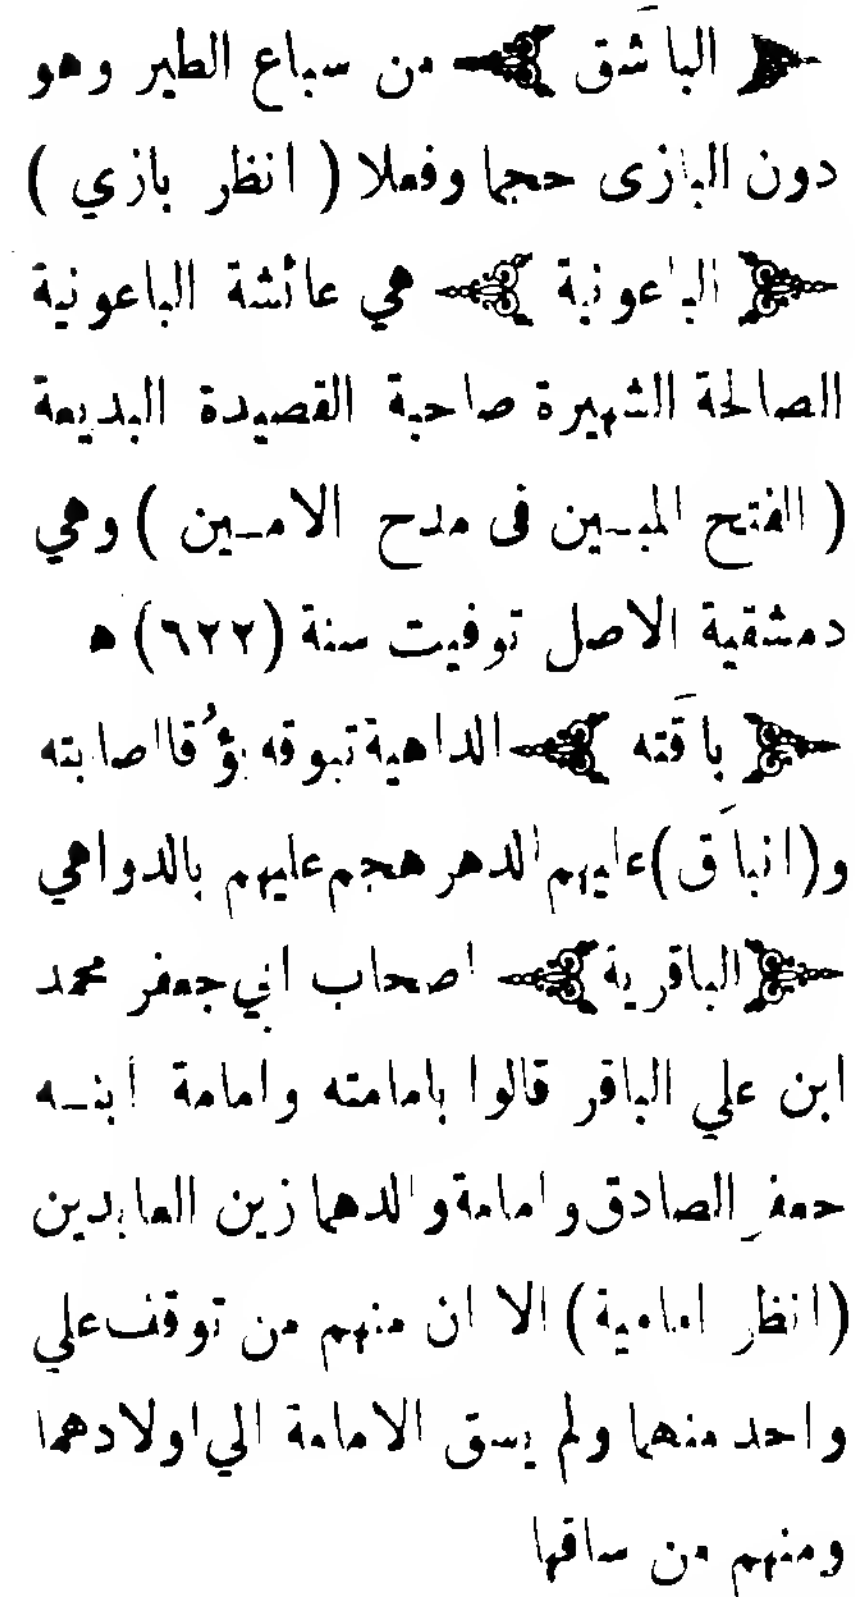 ﴿ الباشَق ﴾ من سباع الطير وهو
دون البازى حجما وفعلا ( انظر بازي )
﴿ الباعونية ﴾ هي عائشة الباعونية
الصالحة الشهيرة صاحبة القصيدة البديعة
( الفتح المبين فى مدح الامين ) وهي
دمشقية الاصل توفيت سنة (٦٢٢) ه
﴿ باقَته ﴾ الداهية تبوقه بؤُقا اصابته
و(انباَق) عليهم الدهر هجم عليهم بالدواهي
﴿ الباقرية ﴾ اصحاب ابي جعفر محمد
ابن علي الباقر قالوا بامامته وامامة ابنه
جعفر الصادق وامامة والدهما زين العابدين
(انظر امامية) الا ان منهم من توقف علي
واحد منهما ولم يسق الامامة الي اولادهما
ومنهم من ساقها